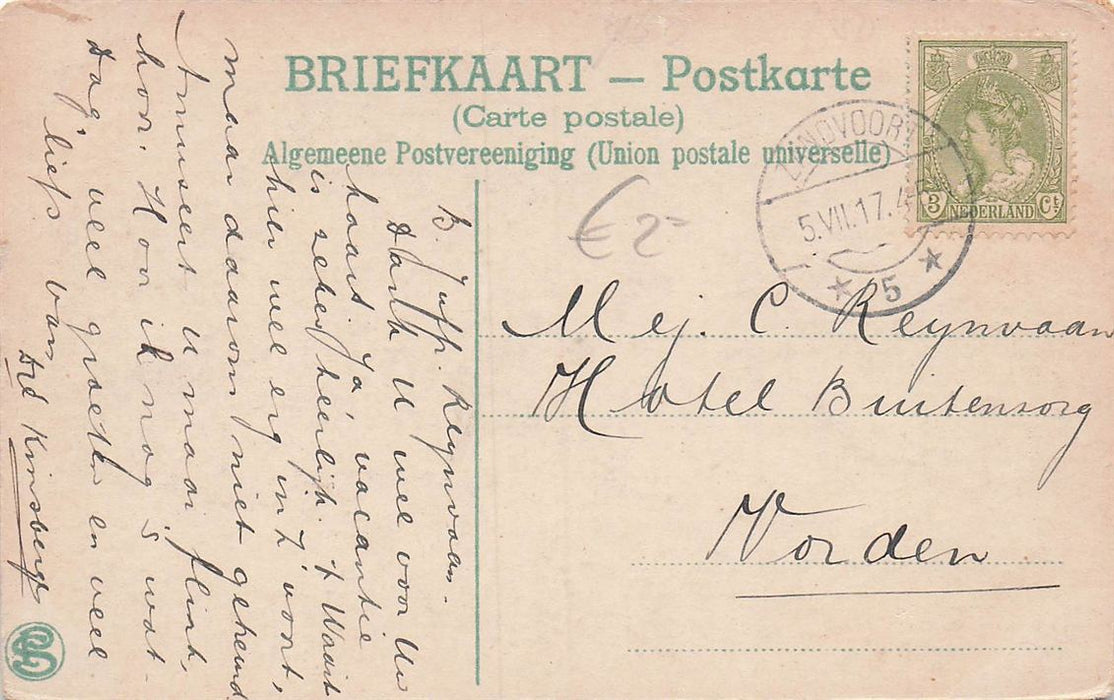 BRIEFKAART — Postkarte
(Carte postale)
Algemeene Postvereeniging (Union postale universelle)
ZANDVOORT
5.VII.17.4
5
3 NEDERLAND Ct
€ 2-
Mej. C. Reynvaan
Hotel Buitensorg
Vorden
B. Juff. Reynvaan.
Dank U wel voor Uw
kaart. Ja, vacantie
is zeker heerlijk. 't Waait
hier wel erg in Z'voort,
maar daarom niet getreurd
Amuseert U maar flink,
hoor. Hoor ik nog 's wat
Dag, veel groeten en veel
liefs van
Kinsberg